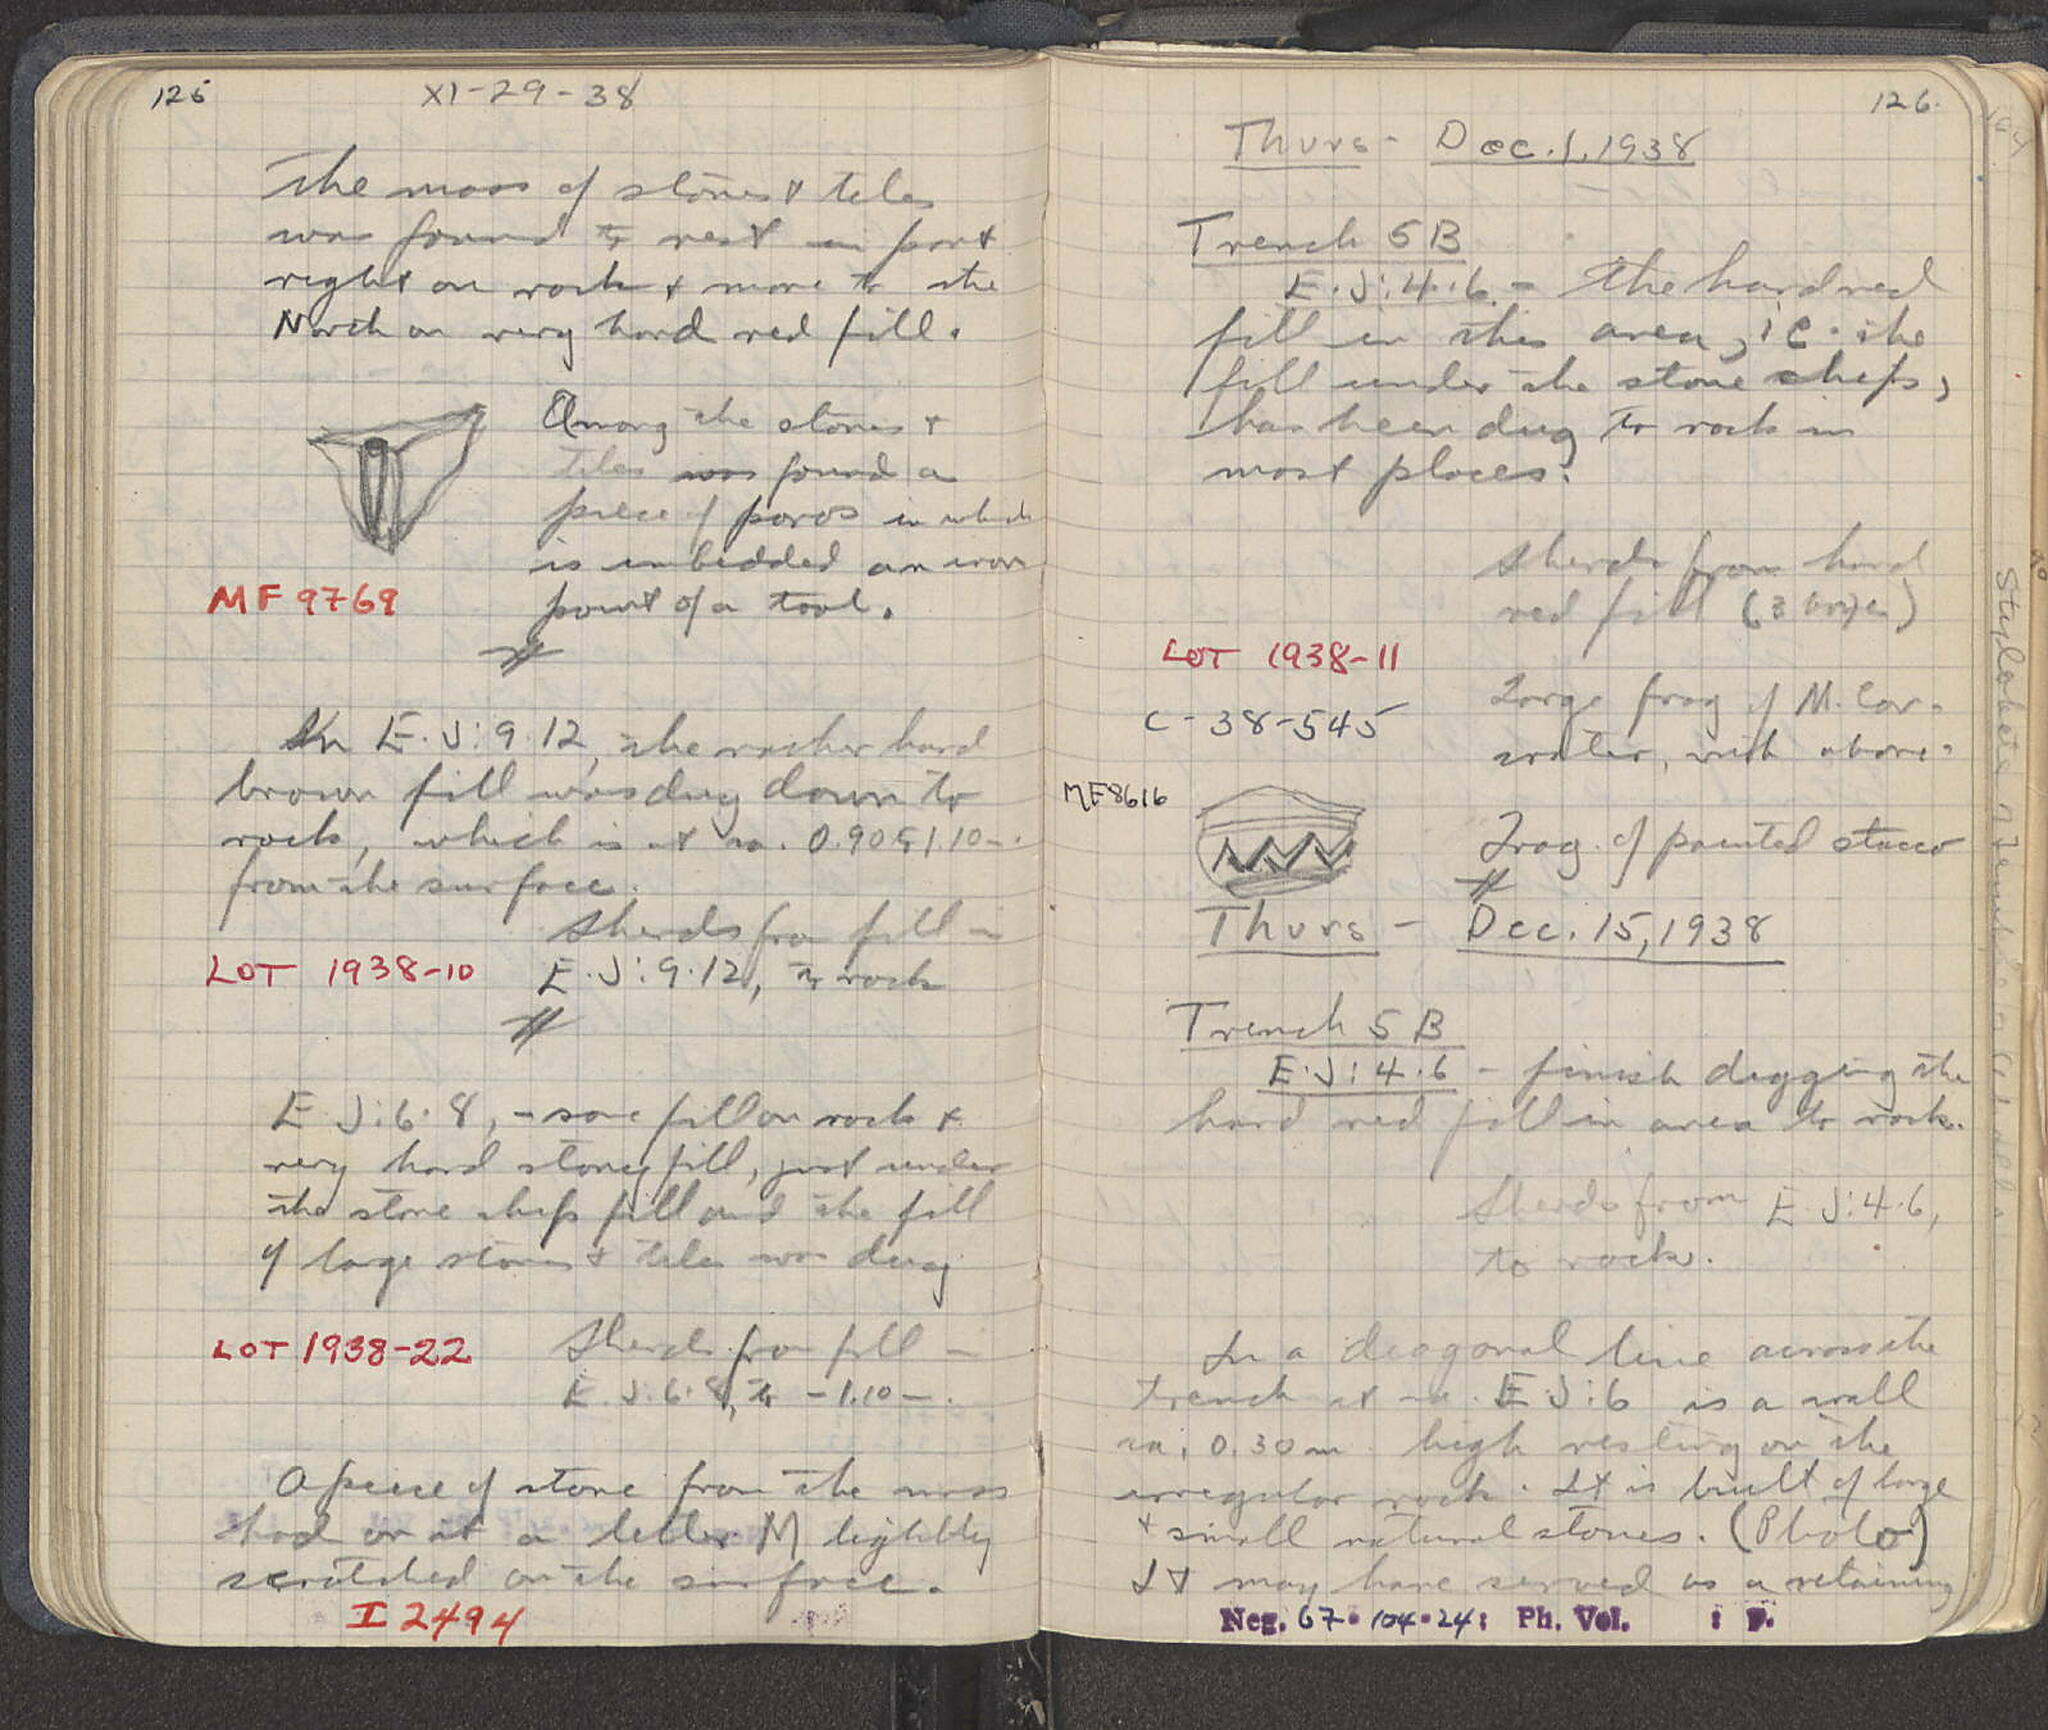 125
XI-29-38
The mass of stones & tiles
was found to rest in part
right on rock & more to the
North on very hard red fill.
Among the stones &
tiles was found a
piece of poros in which
is imbedded an iron
point of a tool.
MF 9769
In E.J:9.12, the rather hard
brown fill was dug down to
rock, which is at ca. 0.90 & 1.10-.
from the surface.
Sherds from fill in
LOT 1938-10
E.J:9.12, to rock
E J:6.8, - some fill on rock &
very hard stoney fill, just under
the stone chips fill and the fill
of large stones & tiles was dug
LOT 1938-22
Sherds from fill in
E.J:6.8, to -1.10-.
A piece of stone from the mass
had on it a letter M lightly
scratched on the surface.
I 2494
126.
Thurs - Dec. 1, 1938
Trench 5B
E.J:4.6. - The hard red
fill in this area, i e. the
fill under the stone chips,
has been dug to rock in
most places.
Sherds from hard
red fill (3
LOT 1938-11
Large frag of M. Cor.
C-38-545
krater, with above.
MF8616
Frag. of painted stucco
Thurs - Dec. 15, 1938
Trench 5B
E.J:4.6 - finish digging the
hard red fill in area to rock.
Sherds from E.J:4.6,
to rock.
In a diagonal line across the
trench at ca. E J:6 is a wall
ca. 0.30m. high resting on the
irregular rock. It is built of large
& small natural stones. (Photo)
It may have served as a retaining
Neg. 67.104.24: Ph. Vol. : p.